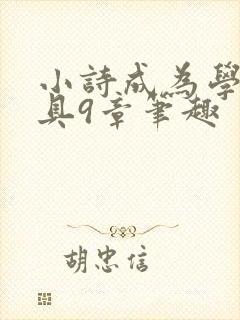 小詩成為學
具9章筆趣
胡忠信